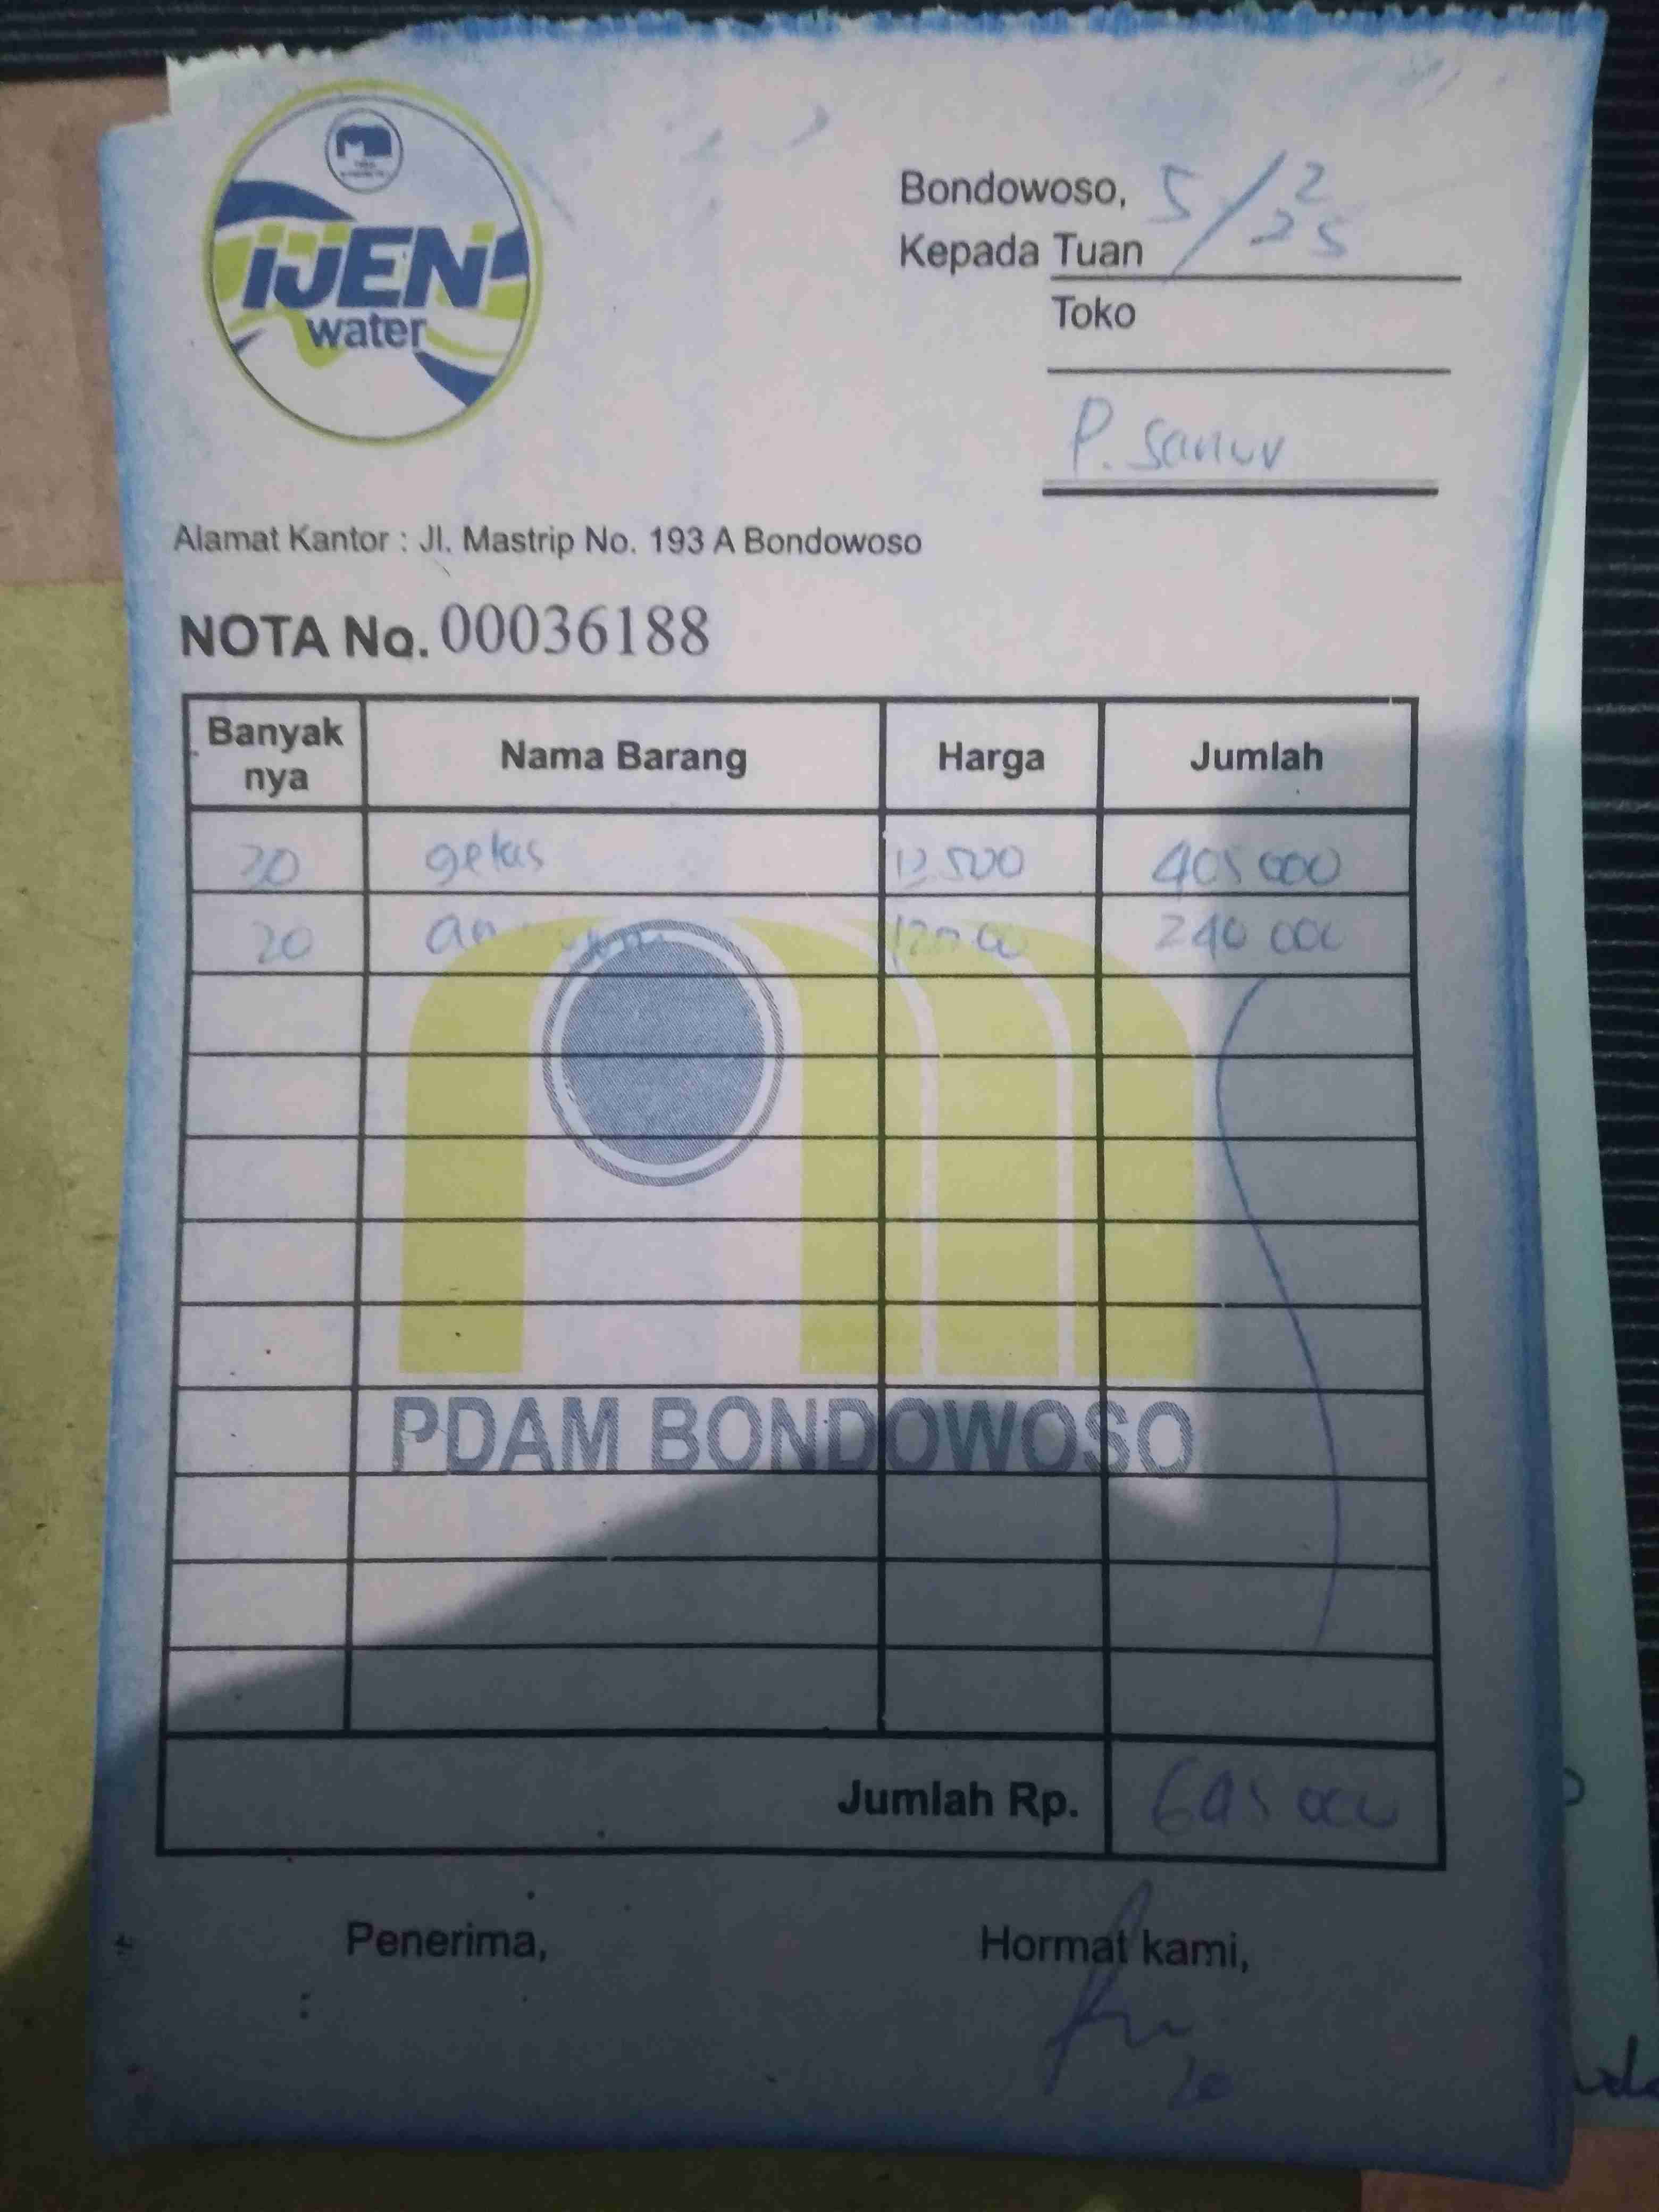 IJEN
water
Bondowoso, 5/2 25
Kepada Tuan
Toko
P. Sanur
Alamat Kantor : Jl. Mastrip No. 193 A Bondowoso
NOTA No. 00036188
Banyak nya Nama Barang Harga Jumlah
30 gelas 13 500 405 000
20 12000 240 000
PDAM BONDOWOSO
Jumlah Rp. 645 000
Penerima, Hormat kami,